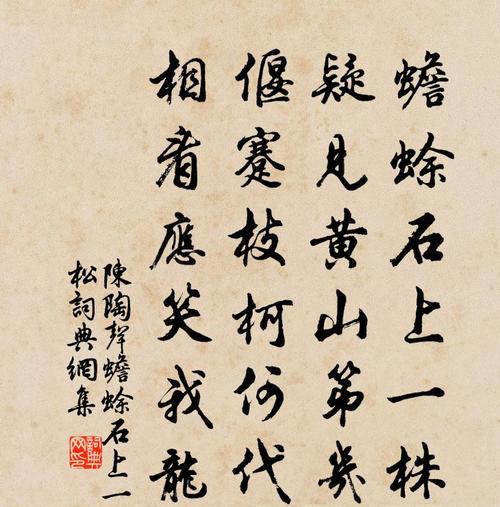 蟾蜍石上一株
疑見黃山第幾
偃蹇枝柯何代
相看應笑我龍
陳陶聲蟾蜍石上一
松詞典網集